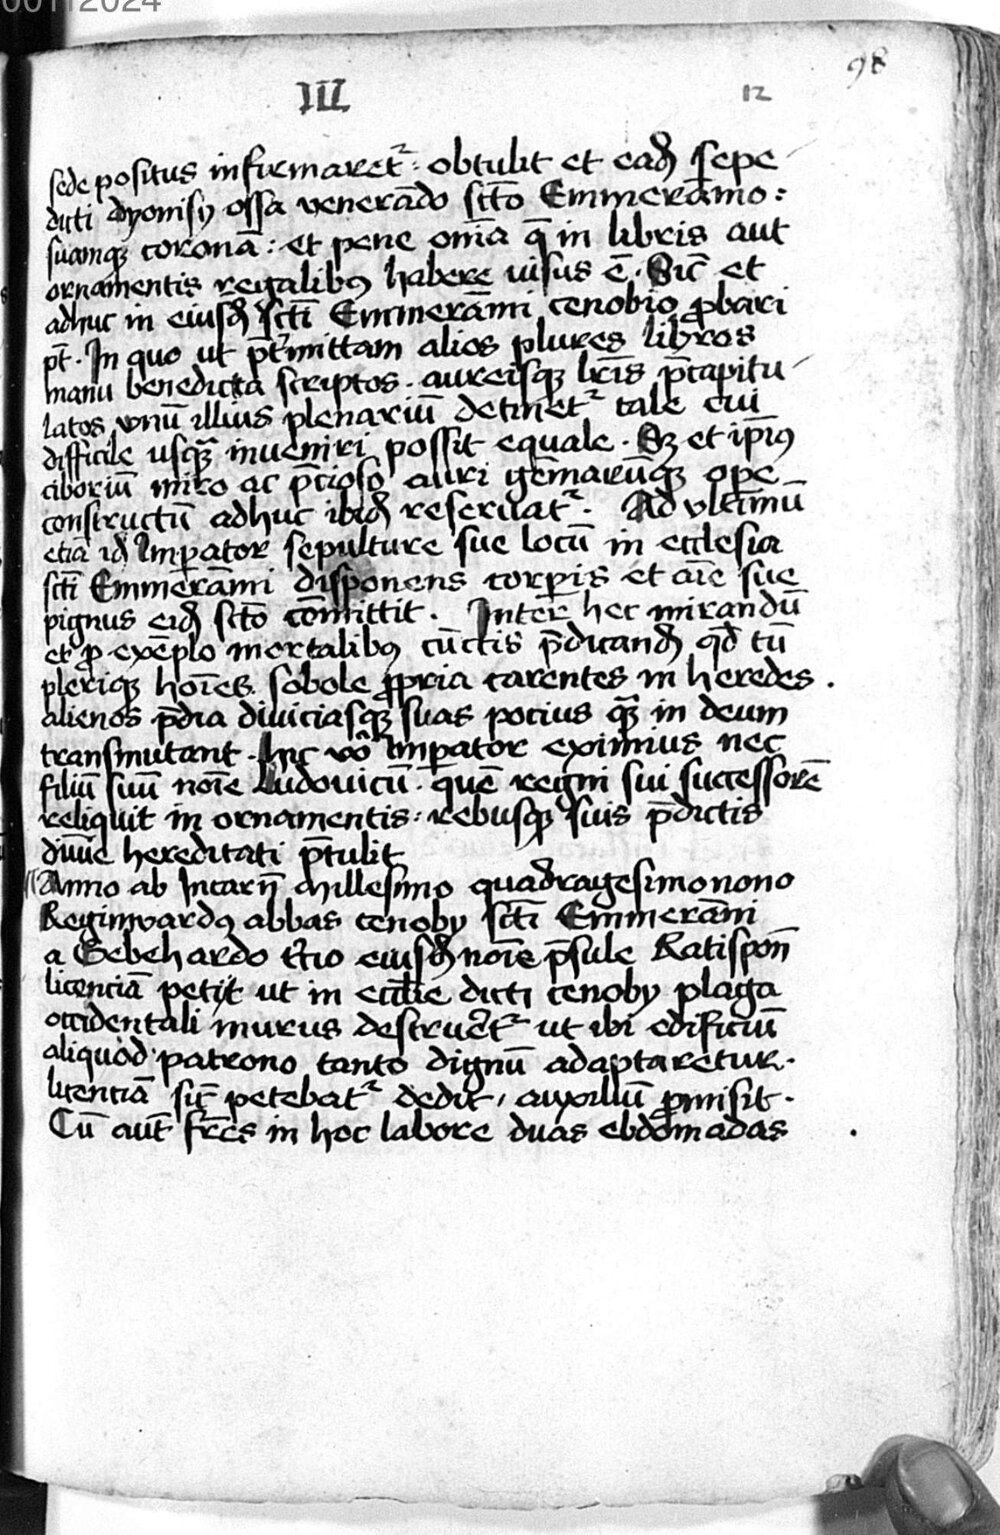 00112024
98
III 12
sede positus infirmaret᷑ : obtulit et eadꝫ sepe
dicti dyonisy ossa venerādo scto Emmeramo :
suamqꝫ coronā : et pene om̄ia q̄ in libris aut
ornamentis regalibꝰ habere uisus ē . Sic et
adhuc in eiusdꝫ scti Emmerāmi cenobio ꝓbari
pt̄ . In quo ut p̄tmittam alios plures libros
manu benedicta scriptos . aureisqꝫ lr̄is p̄capitu
latos vnū illius plenariū detinet᷑ tale cui
difficile usqꝫ̄ inueniri possit equale . Sꝫ et ip̄iꝰ
ciboriū miro ac p̄cioso auri gēmarūqꝫ ope
constructū adhuc ibidꝫ reseruat᷑ . Ad vltimū
etiā idꝫ Imꝑator sepulture sue locū in ecclesia
scti Emmerāmi disponens corꝑis et aīe sue
pignus eidꝫ scto cōmittit . Inter hec mirandū
et ꝓ exēplo mortalibꝰ cūctis p̄dicandꝫ qd̄ tū
pleriqꝫ hoīes sobole ꝓpria carentes in heredes .
alienos p̄dia diuiciasqꝫ suas pocius qꝫ̄ in deum
transmutant . hic vō Imꝑator eximius nec
filiū suū noīe Ludouicū . quē regni sui successorē
reliquit in ornamentis : rebusqꝫ suis p̄dictis
diuīe hereditati p̄tulit
Anno ab Incarn̄ Millesimo quadragesimo nono
Reginwardꝰ abbas cenoby scti Emmerāmi
a Gebehardo t̄cio eiusdꝫ noīe p̄sule Ratispon̄
licenciā petyt ut in eccl̄ie dicti cenoby plaga
occidentali murus destrueret᷑ ut ibi edificiū
aliquod patrono tanto dignū adaptaretur .
licentiā sic̄ petebat᷑ dedit , auxiliū ꝓmisit .
Cū aut̄ fr̄es in hoc labore duas ebdomadas .